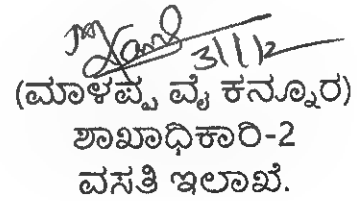 31/1/12
(ಮಾಳಪ್ಪ ವೈ ಕನ್ನೂರ)
ಶಾಖಾಧಿಕಾರಿ-2
ವಸತಿ ಇಲಾಖೆ.